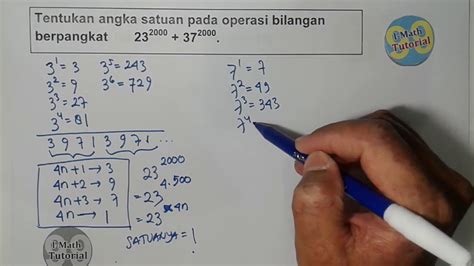 Tentukan angka satuan pada operasi bilangan
berpangkat 23^2000 + 37^2000.
i Math
Tutorial
3^1 = 3 3^5 = 243
3^2 = 9 3^6 = 729
3^3 = 27
3^4 = 81
3 9 7 1 3 9 7 1 ...
4n+1 → 3
4n+2 → 9
4n+3 → 7
4n → 1
23^2000
= 23^4.500
= 23^4n
SATUANNYA = 1
7^1 = 7
7^2 = 49
7^3 = 343
7^4
i Math
Tutorial